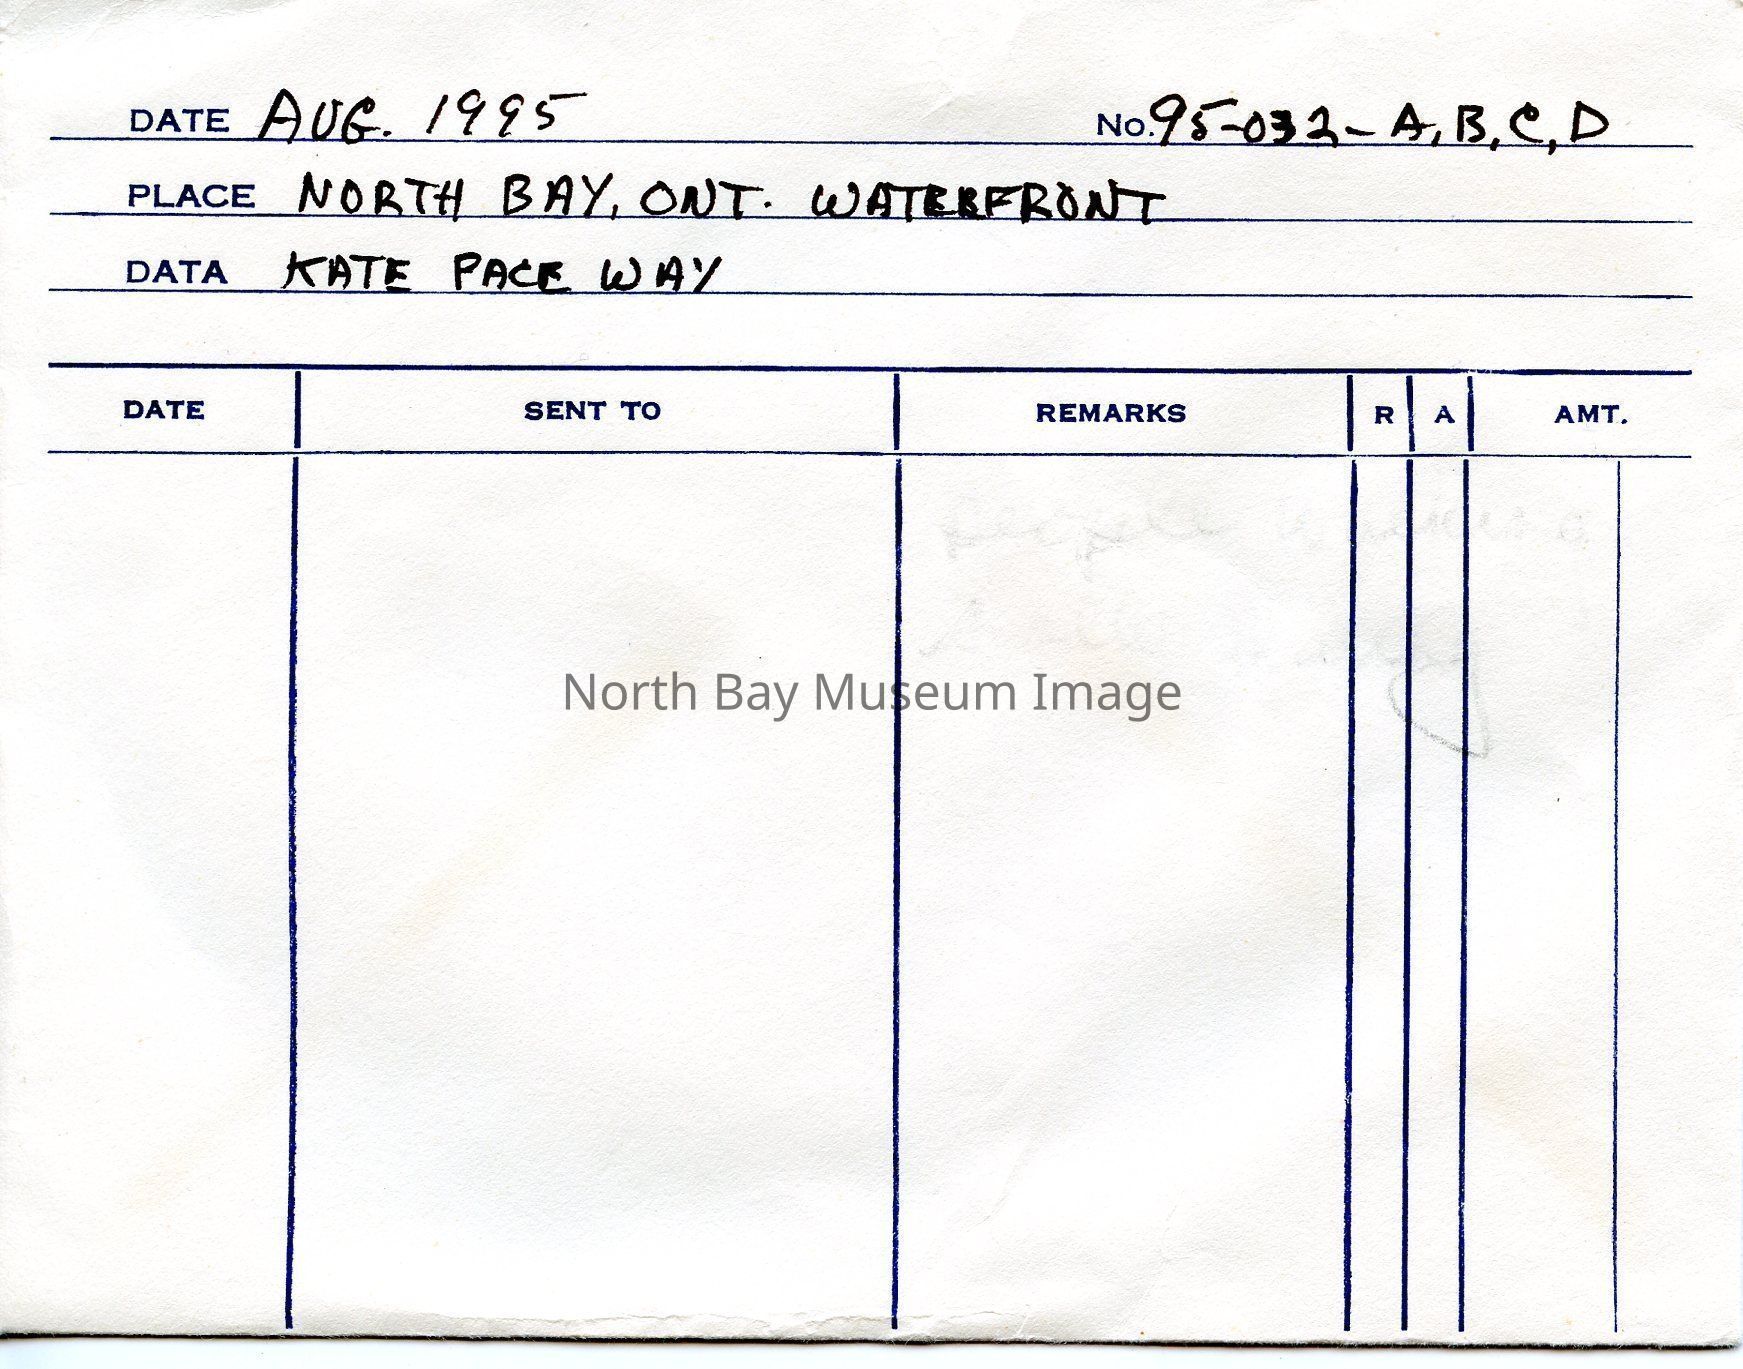 DATE AUG. 1995 No. 95-032-A,B,C,D
PLACE NORTH BAY, ONT. WATERFRONT
DATA KATE PACE WAY
DATE SENT TO REMARKS R A AMT.
North Bay Museum Image